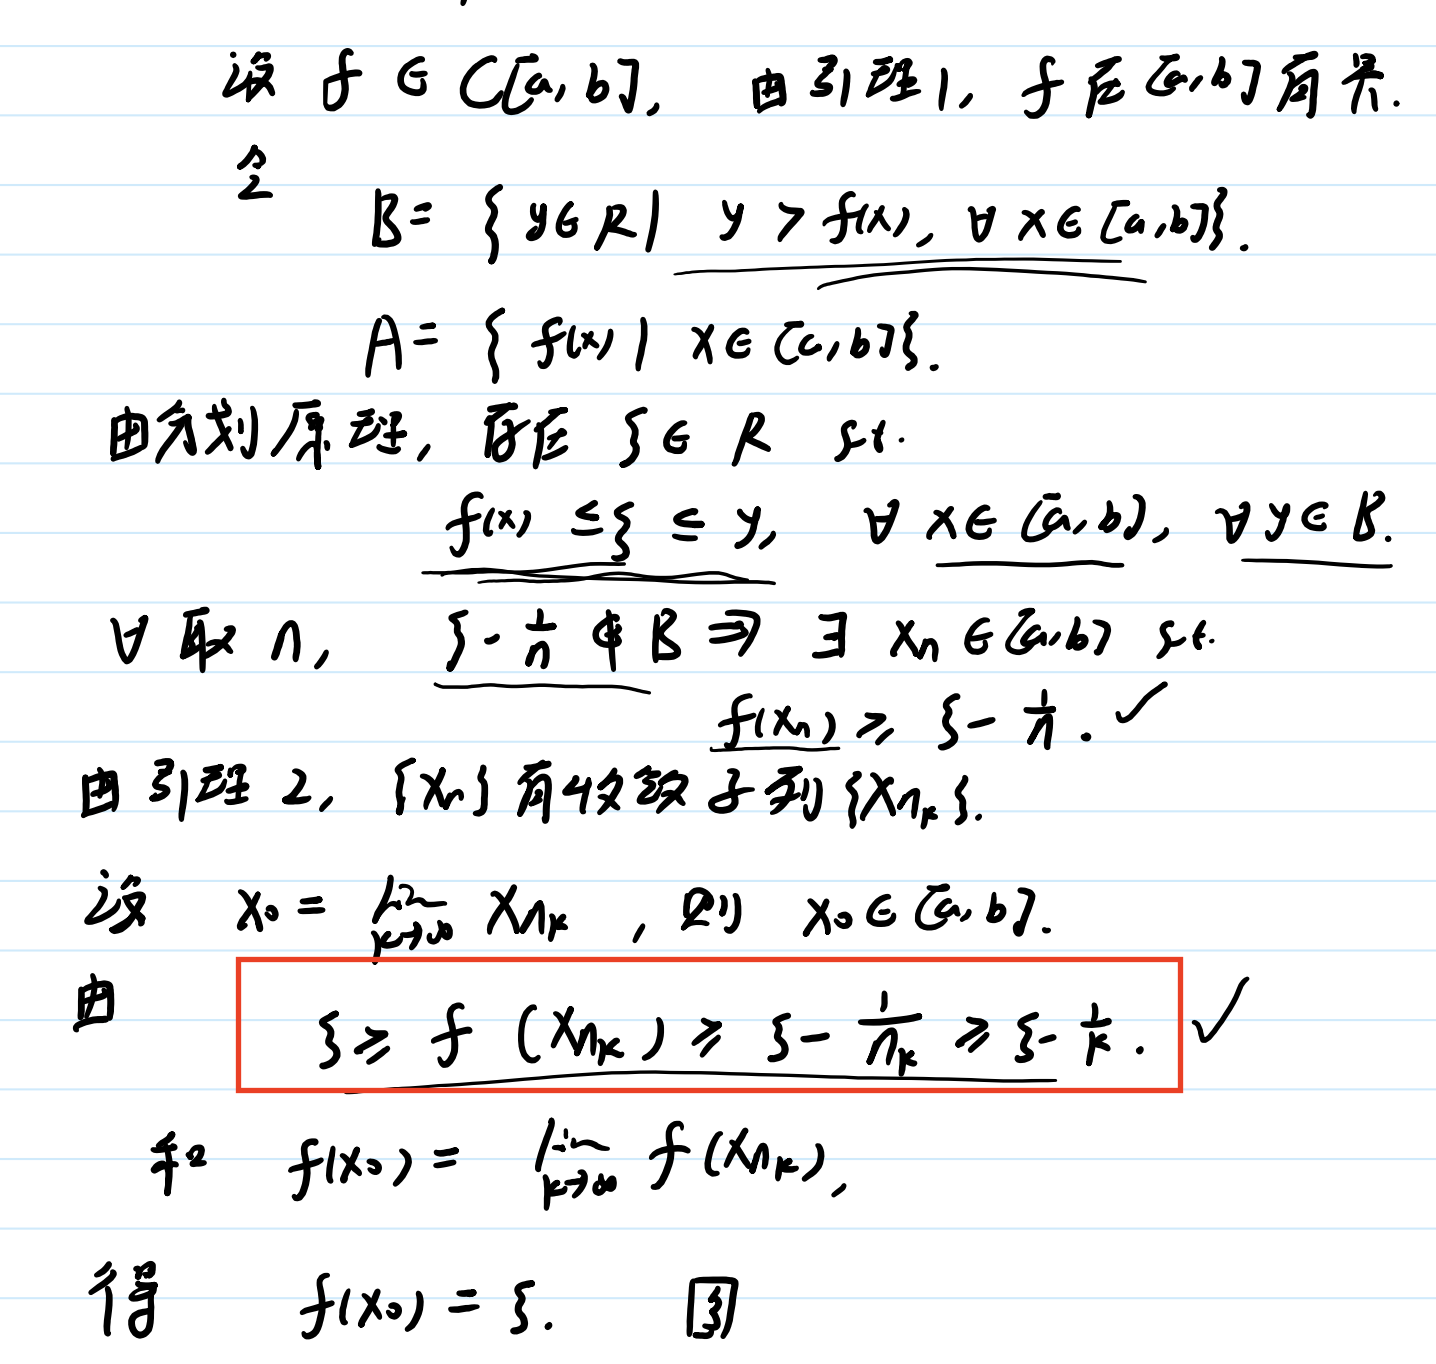 设 f ∈ C[a, b], 由引理1, f在[a,b]有界.
令
B = { y∈R | y > f(x), ∀ x∈[a,b]}.
A = { f(x) | x∈[a,b]}.
由分划原理, 存在 ξ∈R s.t.
f(x) ≤ ξ ≤ y, ∀ x∈[a,b], ∀y∈B.
∀ 取 n, ξ - 1/n ∉ B ⇒ ∃ xn ∈[a,b] s.t.
f(xn) ≥ ξ - 1/n. ✓
由引理2, {xn}有收敛子列{xnk}.
设 x0 = lim k→∞ xnk, 则 x0∈[a,b].
由 ξ ≥ f(xnk) ≥ ξ - 1/nk ≥ ξ - 1/k. ✓
和 f(x0) = lim k→∞ f(xnk),
得 f(x0) = ξ.